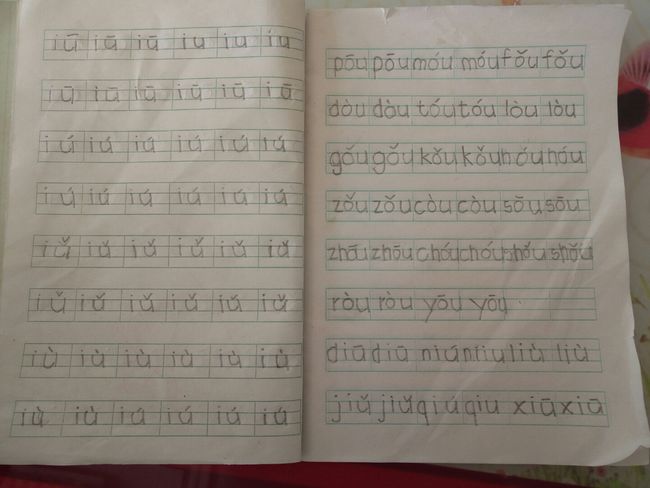 iū iū iū iu iu iu
iū iū iū iū iū iū
iú iú iú iú iú iú
iú iú iú iú iú iú
iǔ iǔ iǔ iǔ iǔ iǔ
iǔ iǔ iǔ iǔ iǔ iǔ
iù iù iù iù iù iù
iù iù iú iú iú iú
pōu pōu móu móu fǒu fǒu
dòu dòu tóu tóu lòu lòu
gǒu gǒu kǒu kǒu hóu hóu
zǒu zǒu còu còu sōu sōu
zhōu zhōu chóu chóu shǒu shǒu
ròu ròu yōu yōu
diū diū niú niu liù liù
jiǔ jiǔ qiú qiu xiū xiū